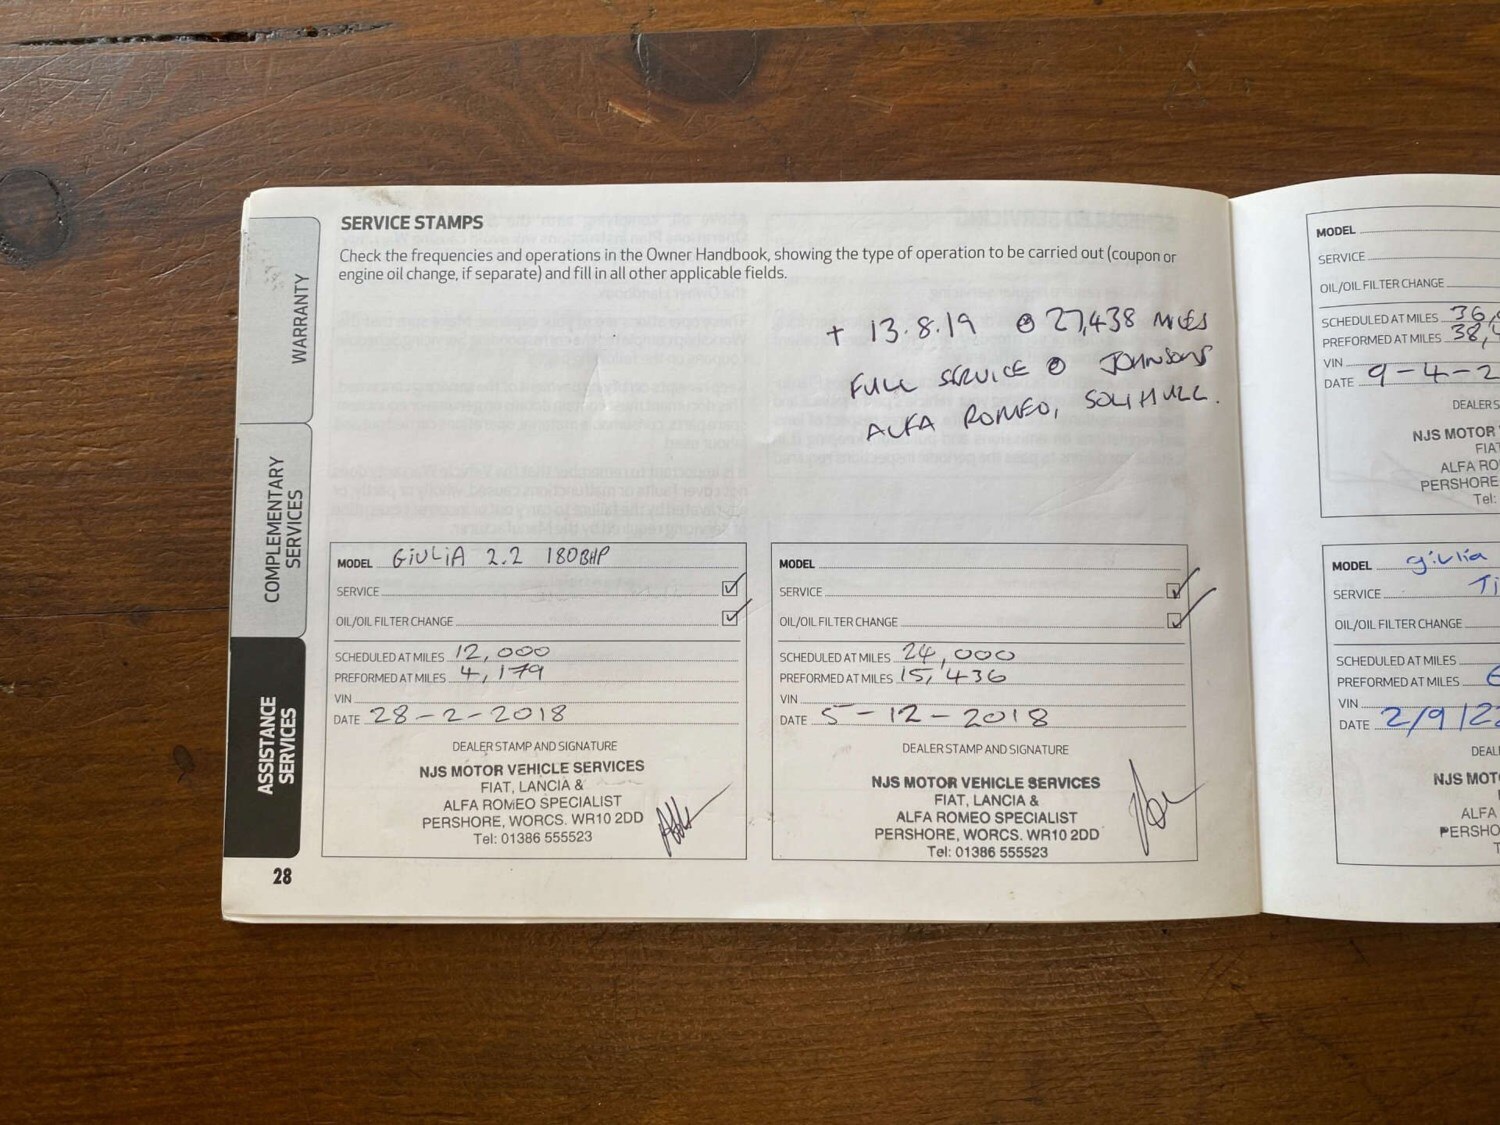 SERVICE STAMPS
Check the frequencies and operations in the Owner Handbook, showing the type of operation to be carried out (coupon or
engine oil change, if separate) and fill in all other applicable fields.
+ 13.8.19 @ 27,438 MILES
FULL SERVICE @ JOHNSONS
ALFA ROMEO, SOLIHULL.
WARRANTY
COMPLEMENTARY
SERVICES
ASSISTANCE
SERVICES
MODEL GIULIA 2.2 180BHP
SERVICE
OIL/OIL FILTER CHANGE
SCHEDULED AT MILES 12,000
PREFORMED AT MILES 4,179
VIN
DATE 28-2-2018
DEALER STAMP AND SIGNATURE
NJS MOTOR VEHICLE SERVICES
FIAT, LANCIA &
ALFA ROMEO SPECIALIST
PERSHORE, WORCS. WR10 2DD
Tel: 01386 555523
28
MODEL
SERVICE
OIL/OIL FILTER CHANGE
SCHEDULED AT MILES 24,000
PREFORMED AT MILES 15,436
VIN
DATE 5-12-2018
DEALER STAMP AND SIGNATURE
NJS MOTOR VEHICLE SERVICES
FIAT, LANCIA &
ALFA ROMEO SPECIALIST
PERSHORE, WORCS. WR10 2DD
Tel: 01386 555523
MODEL
SERVICE
OIL/OIL FILTER CHANGE
SCHEDULED AT MILES 36,
PREFORMED AT MILES 38,
VIN
DATE 9-4-2
DEALER S
NJS MOTOR
FIA
ALFA RO
PERSHORE
Tel:
MODEL giulia
SERVICE Ti
OIL/OIL FILTER CHANGE
SCHEDULED AT MILES
PREFORMED AT MILES
VIN
DATE 2/9/22
DEAL
NJS MOT
ALFA
PERSHO
T